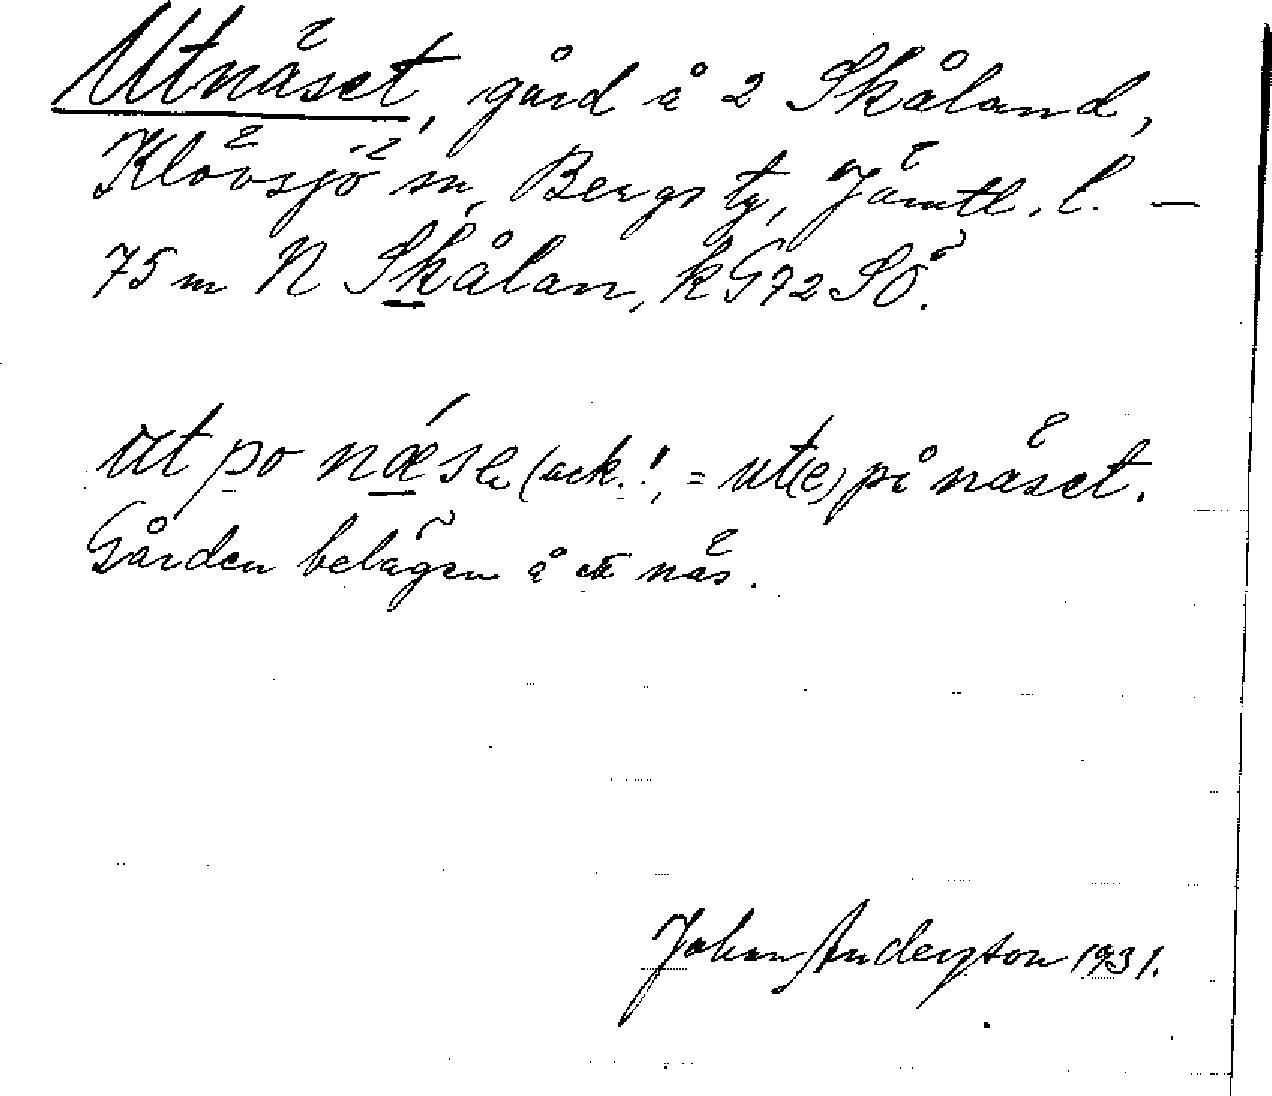 Utnäset, gård å 2 Skåland,
Klövsjö sn, Bergs tg, Jämtl. l. —
75 m N Skålan, k G72 SÖ.
ut po næse (ack.!, = ut(e) på näset.
Gården belägen å ett näs.
Johan Anderzson 1931.